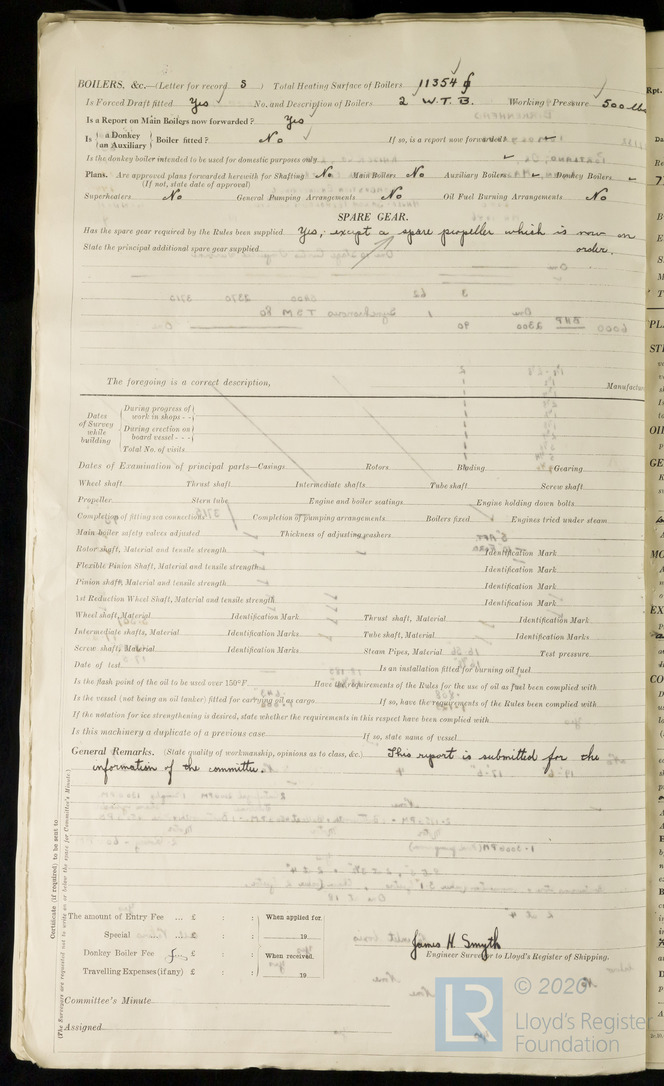 BOILERS, &c.—(Letter for record S ) Total Heating Surface of Boilers 11354
Is Forced Draft fitted Yes No. and Description of Boilers 2 W.T.B. Working Pressure 500 lbs
Is a Report on Main Boilers now forwarded? Yes
Is { a Donkey / an Auxiliary } Boiler fitted? No If so, is a report now forwarded?
Is the donkey boiler intended to be used for domestic purposes only
Plans. Are approved plans forwarded herewith for Shafting No Main Boilers No Auxiliary Boilers Donkey Boilers
(If not, state date of approval)
Superheaters No General Pumping Arrangements No Oil Fuel Burning Arrangements No
SPARE GEAR.
Has the spare gear required by the Rules been supplied Yes, except a spare propeller which is now on
State the principal additional spare gear supplied order.
The foregoing is a correct description, Manufactur
Dates of Survey while building
During progress of work in shops - -
During erection on board vessel - - -
Total No. of visits
Dates of Examination of principal parts—Casings Rotors Blading Gearing
Wheel shaft Thrust shaft Intermediate shafts Tube shaft Screw shaft
Propeller Stern tube Engine and boiler seatings Engine holding down bolts
Completion of fitting sea connections Completion of pumping arrangements Boilers fixed Engines tried under steam
Main boiler safety valves adjusted Thickness of adjusting washers
Rotor shaft, Material and tensile strength Identification Mark
Flexible Pinion Shaft, Material and tensile strength Identification Mark
Pinion shaft, Material and tensile strength Identification Mark
1st Reduction Wheel Shaft, Material and tensile strength Identification Mark
Wheel shaft, Material Identification Mark Thrust shaft, Material Identification Mark
Intermediate shafts, Material Identification Marks Tube shaft, Material Identification Marks
Screw shaft, Material Identification Marks Steam Pipes, Material Test pressure
Date of test Is an installation fitted for burning oil fuel
Is the flash point of the oil to be used over 150°F. Have the requirements of the Rules for the use of oil as fuel been complied with
Is the vessel (not being an oil tanker) fitted for carrying oil as cargo If so, have the requirements of the Rules been complied with
If the notation for ice strengthening is desired, state whether the requirements in this respect have been complied with
Is this machinery a duplicate of a previous case If so, state name of vessel
General Remarks. (State quality of workmanship, opinions as to class, &c.) This report is submitted for the
information of the committee.
Certificate (if required) to be sent to
(The Surveyors are requested not to write on or below the space for Committee's Minute)
The amount of Entry Fee ... £ : : When applied for
Special ... ... £ : : 19
Donkey Boiler Fee ... £ : : When received.
Travelling Expenses (if any) £ : : 19
James H. Smyth
Engineer Surveyor to Lloyd's Register of Shipping.
Committee's Minute
Assigned
LR
© 2020
Lloyd's Register
Foundation
Rpt.